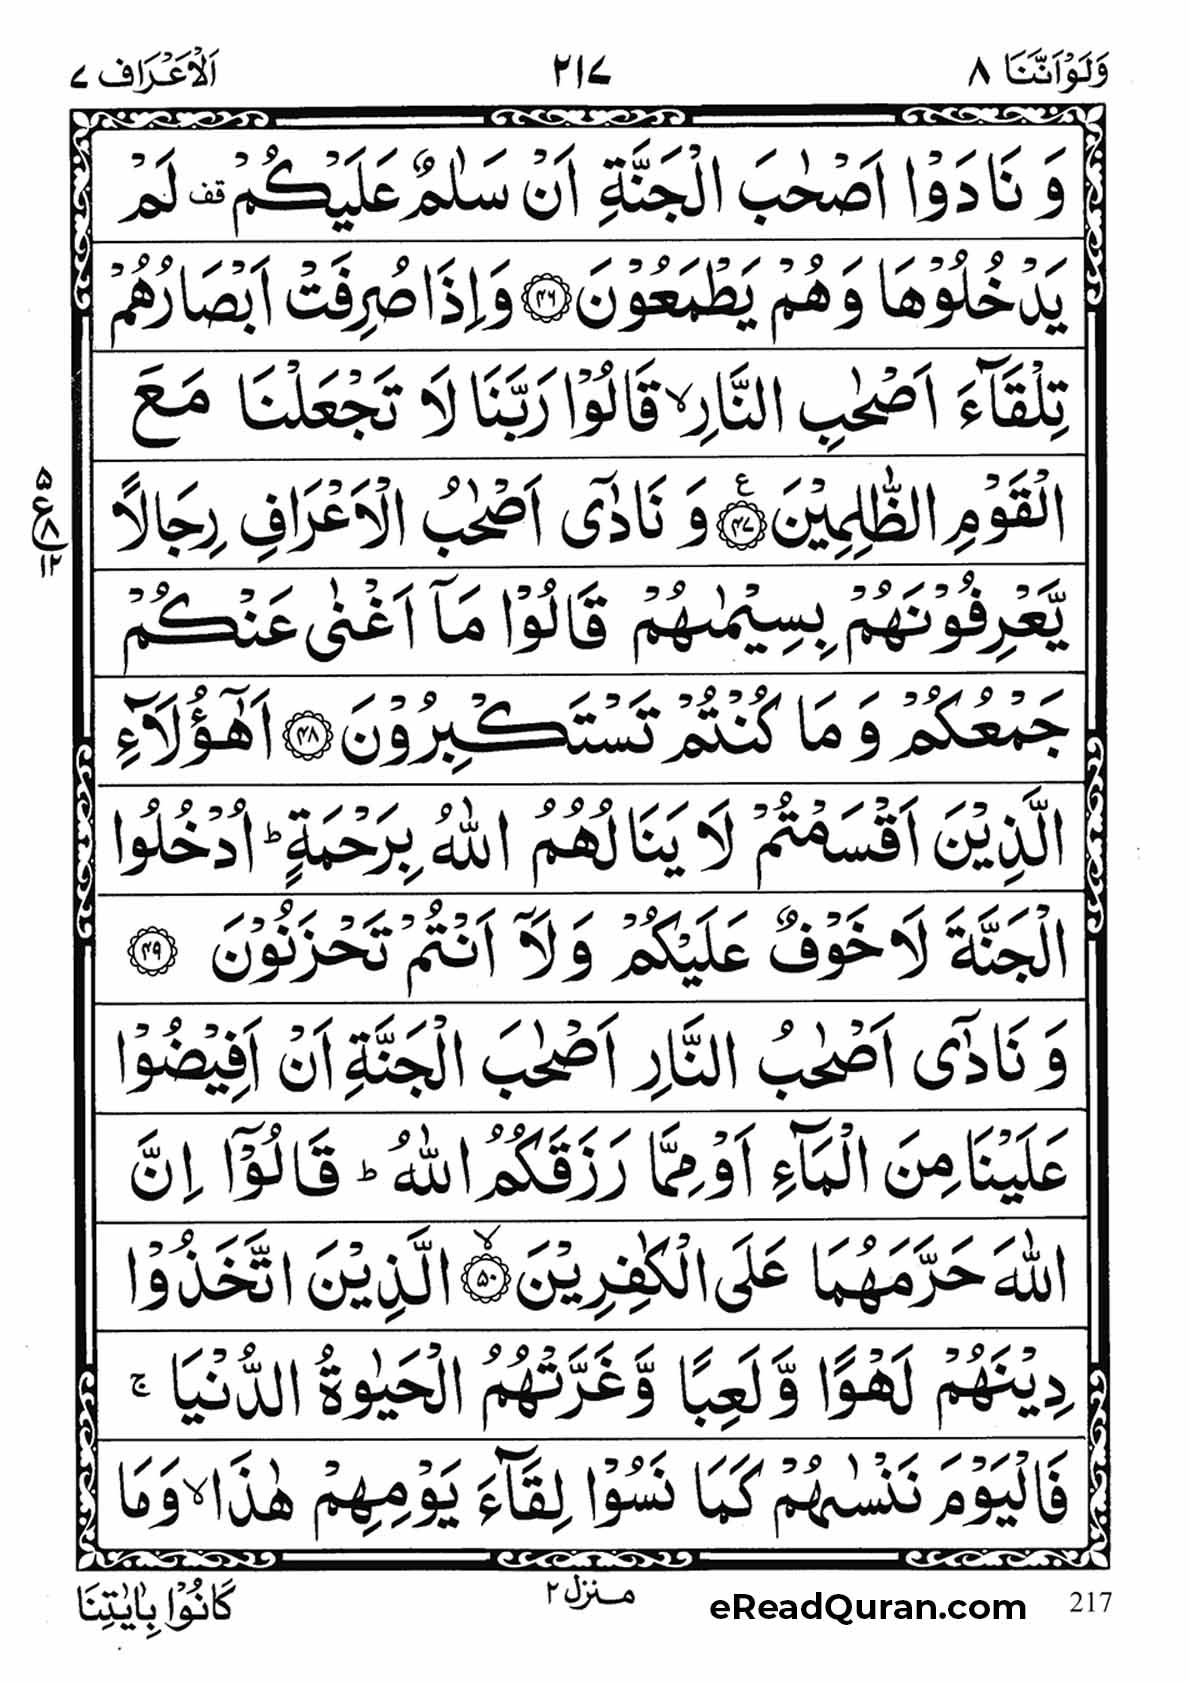 وَلَوْاَنَّنَا ٨
٢١٧
اَلْاَعْرَاف ٧
وَ نَادَوْا اَصْحٰبَ الْجَنَّةِ اَنْ سَلٰمٌ عَلَیْكُمْ قف لَمْ
یَدْخُلُوْهَا وَهُمْ یَطْمَعُوْنَ ﴿۴۶﴾ وَاِذَا صُرِفَتْ اَبْصَارُهُمْ
تِلْقَآءَ اَصْحٰبِ النَّارِ ۙ قَالُوْا رَبَّنَا لَا تَجْعَلْنَا مَعَ
الْقَوْمِ الظّٰلِمِیْنَ ﴿۴۷﴾ ع وَ نَادٰۤی اَصْحٰبُ الْاَعْرَافِ رِجَالًا
یَّعْرِفُوْنَهُمْ بِسِیْمٰىهُمْ قَالُوْا مَاۤ اَغْنٰی عَنْكُمْ
جَمْعُكُمْ وَ مَا كُنْتُمْ تَسْتَكْبِرُوْنَ ﴿۴۸﴾ اَهٰۤؤُلَآءِ
الَّذِیْنَ اَقْسَمْتُمْ لَا یَنَالُهُمُ اللّٰهُ بِرَحْمَةٍ ؕ اُدْخُلُوا
الْجَنَّةَ لَا خَوْفٌ عَلَیْكُمْ وَ لَاۤ اَنْتُمْ تَحْزَنُوْنَ ﴿۴۹﴾
وَ نَادٰۤی اَصْحٰبُ النَّارِ اَصْحٰبَ الْجَنَّةِ اَنْ اَفِیْضُوْا
عَلَیْنَا مِنَ الْمَآءِ اَوْ مِمَّا رَزَقَكُمُ اللّٰهُ ؕ قَالُوْۤا اِنَّ
اللّٰهَ حَرَّمَهُمَا عَلَی الْكٰفِرِیْنَ ﴿۵۰﴾ ۙ الَّذِیْنَ اتَّخَذُوْا
دِیْنَهُمْ لَهْوًا وَّ لَعِبًا وَّ غَرَّتْهُمُ الْحَیٰوةُ الدُّنْیَا ۚ
فَالْیَوْمَ نَنْسٰىهُمْ كَمَا نَسُوْا لِقَآءَ یَوْمِهِمْ هٰذَا ۙ وَ مَا
۵
ع ٨
١٢
كَانُوْا بِاٰیٰتِنَا
منزل ٢
eReadQuran.com
217